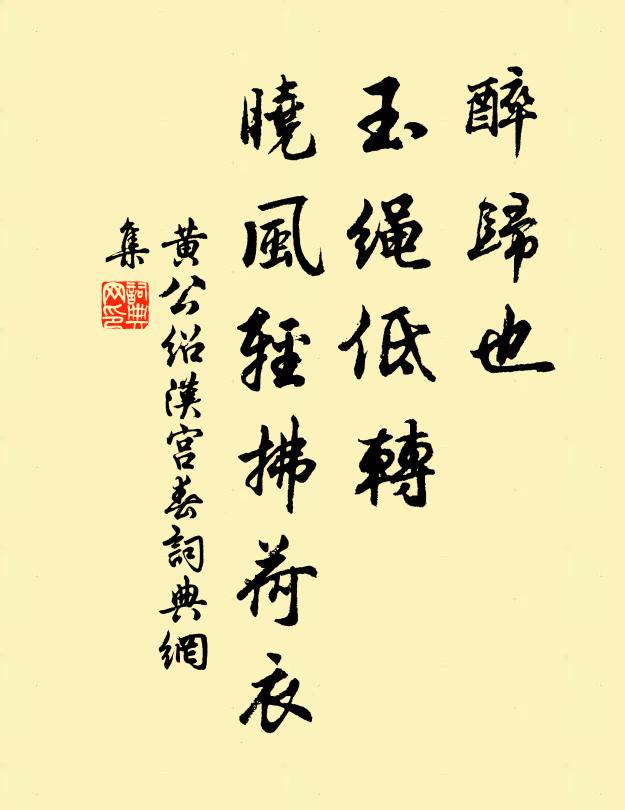 醉歸也
玉繩低轉
曉風輕拂荷衣
黄公紹漢宫春詞典網
集
詞典
网印